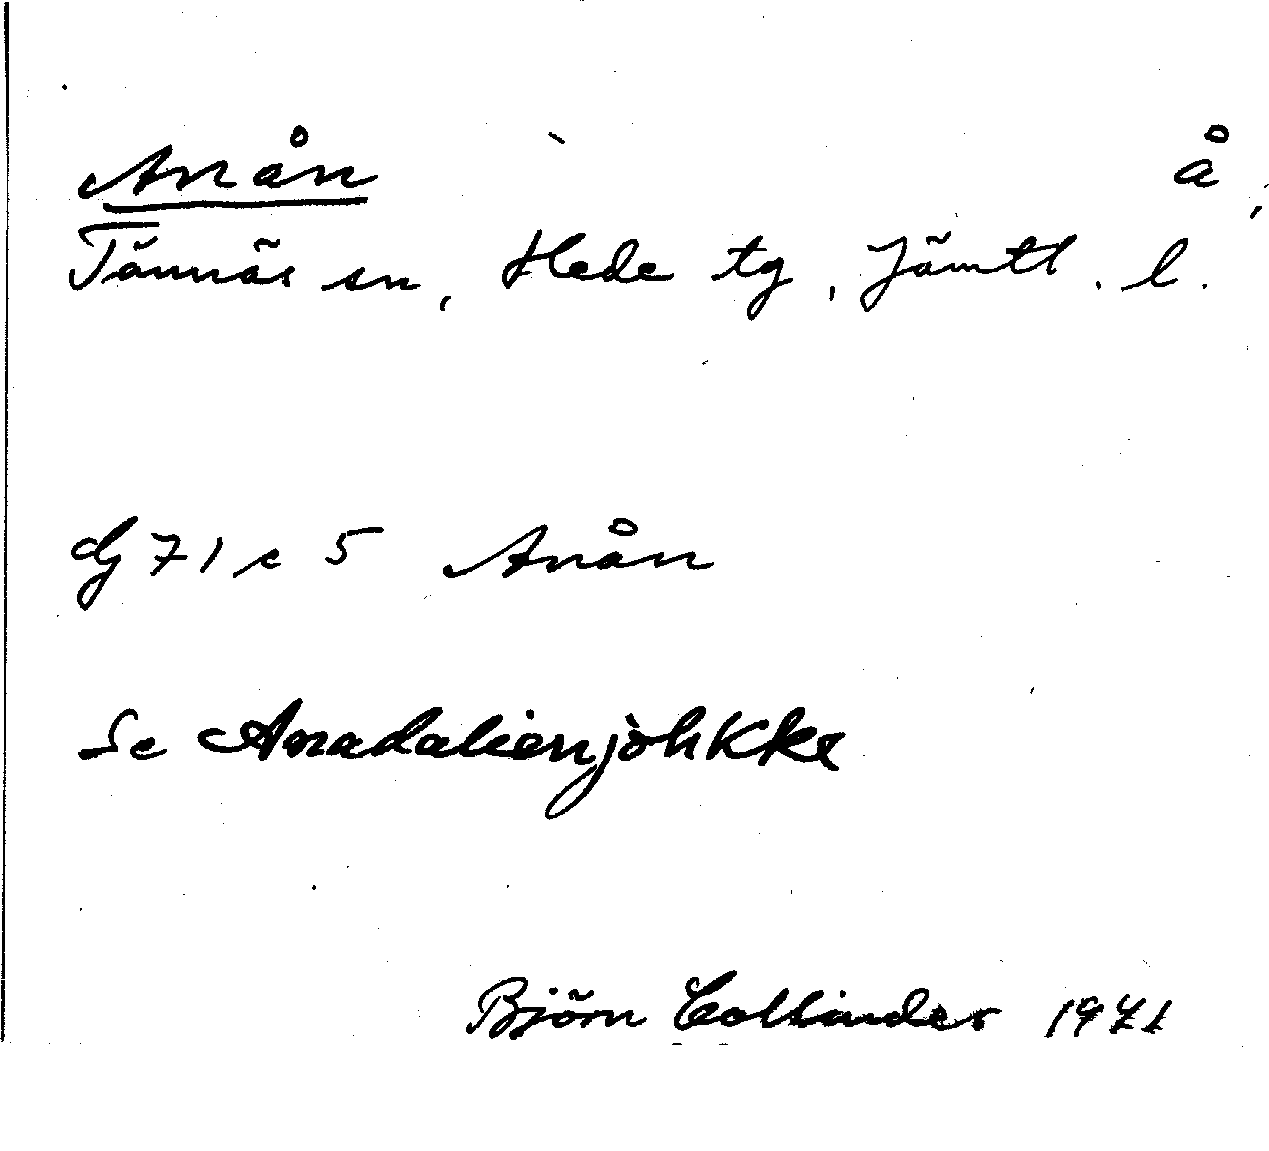 Anån å
Tännäs sn, Hede tg, Jämtl. l.
Gj 71 c 5 Anån
Se Anadalienjohkke
Björn Collinder 1971